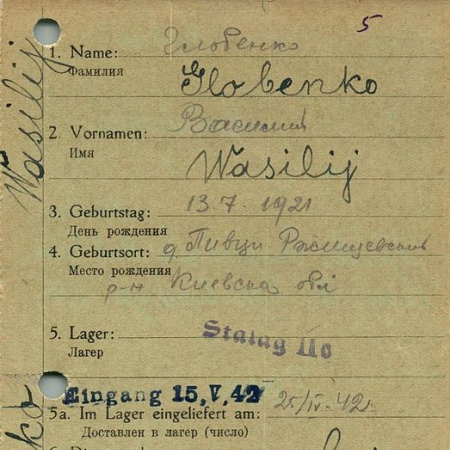 5
1. Name: Глобенко
Фамилия Globenko
2. Vornamen: Василий
Имя Wasilij
3. Geburtstag: 13.7.1921
День рождения
4. Geburtsort: д. Пивци Ржищевский
Место рождения р-н Киевска обл
5. Lager: Stalag II
Лагер
Eingang 15.V.42
5a. Im Lager eingeliefert am: 25/IV-42
Доставлен в лагер (число)
Wasilij
ko